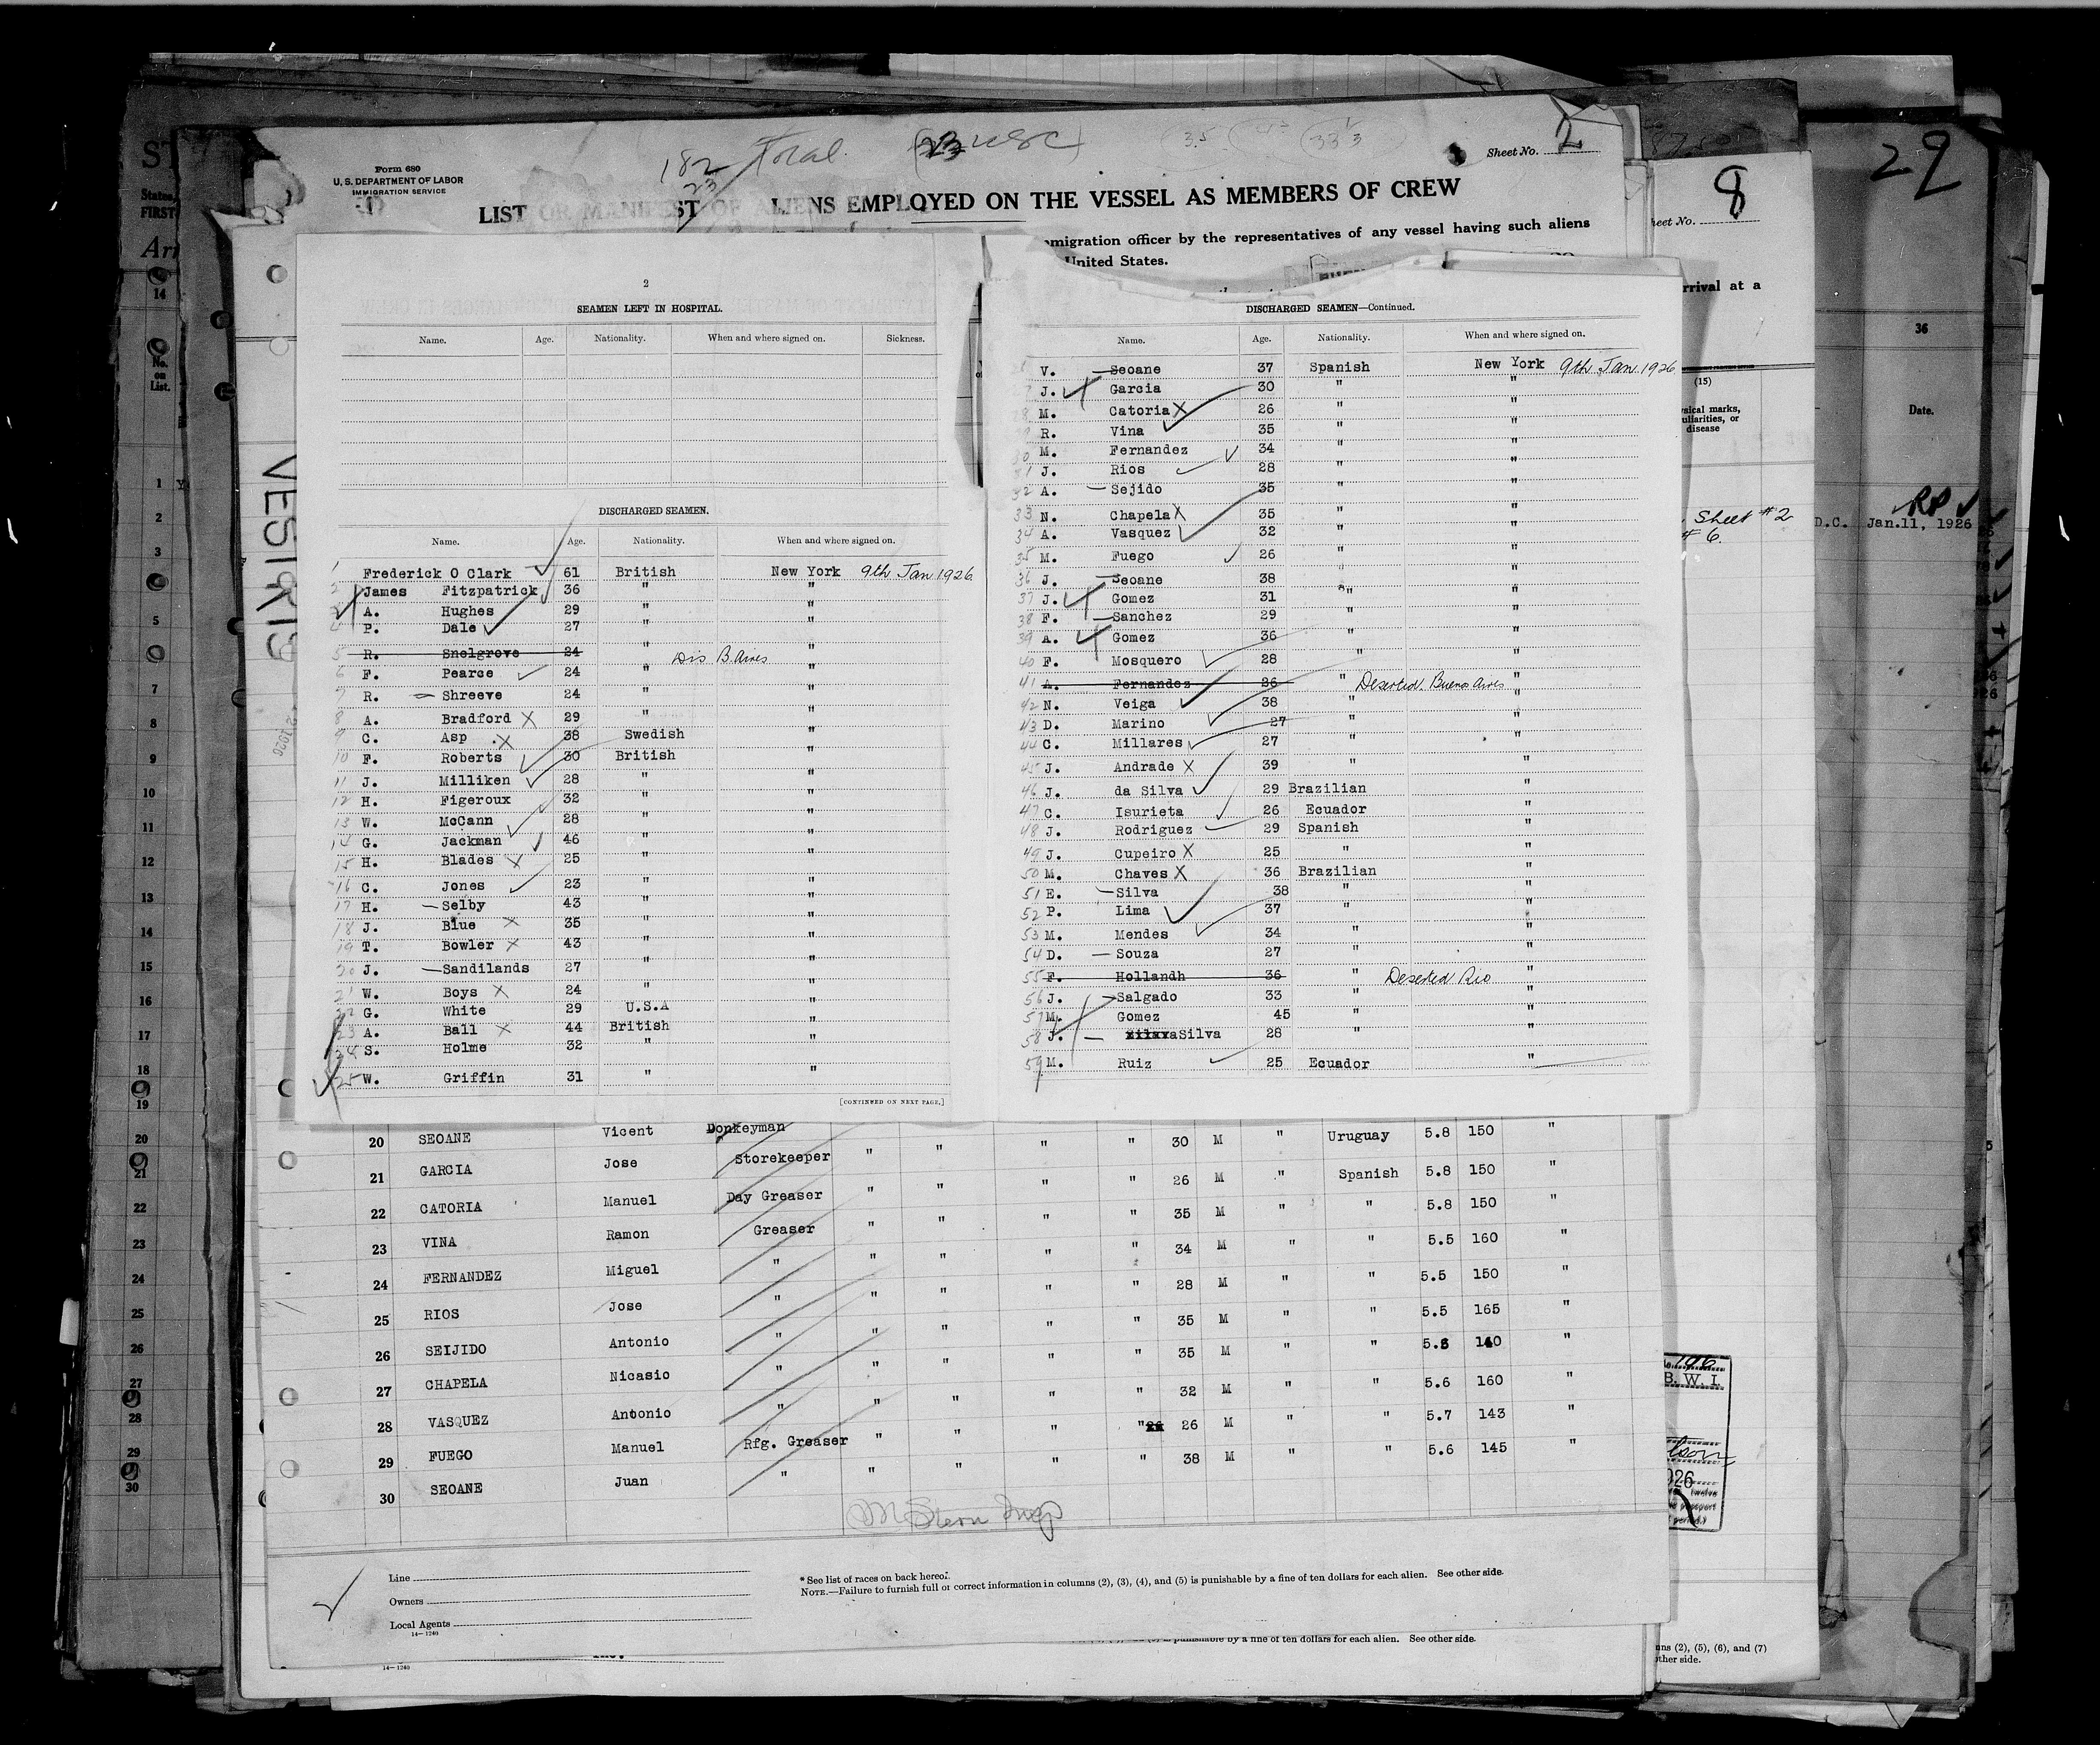 182 Total
23
Form 680
U. S. DEPARTMENT OF LABOR
IMMIGRATION SERVICE
Sheet No. 2
LIST OR MANIFEST OF ALIENS EMPLOYED ON THE VESSEL AS MEMBERS OF CREW
immigration officer by the representatives of any vessel having such aliens
United States.
2
SEAMEN LEFT IN HOSPITAL.
Name. Age. Nationality. When and where signed on. Sickness.
DISCHARGED SEAMEN.
Name. Age. Nationality. When and where signed on.
1 Frederick O Clark 61 British New York 9th Jan 1926
2 James Fitzpatrick 36 " "
3 A. Hughes 29 " "
4 P. Dale 27 " "
5 R. Snelgrove 24 " Dis B. Aires "
6 F. Pearce 24 " "
7 R. Shreeve 24 " "
8 A. Bradford X 29 " "
9 C. Asp X 38 Swedish "
10 F. Roberts 30 British "
11 J. Milliken 28 " "
12 H. Figeroux 32 " "
13 W. McCann 28 " "
14 G. Jackman 46 " "
15 H. Blades X 25 " "
16 C. Jones 23 " "
17 H. Selby 43 " "
18 J. Blue X 35 " "
19 T. Bowler X 43 " "
20 J. Sandilands 27 " "
21 W. Boys X 24 " "
22 G. White 29 U.S.A "
23 A. Ball X 44 British "
24 S. Holme 32 " "
25 W. Griffin 31 " "
[CONTINUED ON NEXT PAGE.]
DISCHARGED SEAMEN—Continued.
Name. Age. Nationality. When and where signed on.
V. Seoane 37 Spanish New York 9th Jan. 1926
J. Garcia 30 " "
28 M. Catoria X 26 " "
R. Vina 35 " "
30 M. Fernandez 34 " "
31 J. Rios 28 " "
32 A. Sejido 35 " "
33 N. Chapela X 35 " "
34 A. Vasquez 32 " "
35 M. Fuego 26 " "
36 J. Seoane 38 " "
37 J. Gomez 31 " "
38 F. Sanchez 29 " "
39 A. Gomez 36 " "
40 F. Mosquero 28 " "
41 A. Fernandez 26 " Deserted. Buenos Aires "
42 N. Veiga 38 " "
43 D. Marino 27 " "
44 C. Millares 27 " "
45 J. Andrade X 39 " "
46 J. da Silva 29 Brazilian "
47 C. Isurieta 26 Ecuador "
48 J. Rodriguez 29 Spanish "
49 J. Cupeiro X 25 " "
50 M. Chaves X 36 Brazilian "
51 E. Silva 38 " "
52 P. Lima 37 " "
53 M. Mendes 34 " "
54 D. Souza 27 " "
55 F. Hollandh 36 " Deserted Rio "
56 J. Salgado 33 " "
57 M. Gomez 45 " "
58 J. Silva 28 " "
59 M. Ruiz 25 Ecuador "
20 SEOANE Vicent Donkeyman " " " " 30 M " Uruguay 5.8 150 "
21 GARCIA Jose Storekeeper " " " " 26 M " Spanish 5.8 150 "
22 CATORIA Manuel Day Greaser " " " " 35 M " " 5.8 150 "
23 VINA Ramon Greaser " " " " 34 M " " 5.5 160 "
24 FERNANDEZ Miguel " " " " " 28 M " " 5.5 150 "
25 RIOS Jose " " " " " 35 M " " 5.5 165 "
26 SEIJIDO Antonio " " " " " 35 M " " 5.6 140 "
27 CHAPELA Nicasio " " " " " 32 M " " 5.6 160 "
28 VASQUEZ Antonio " " " " " 26 M " " 5.7 143 "
29 FUEGO Manuel Rfg. Greaser " " " " 38 M " " 5.6 145 "
30 SEOANE Juan " " "
Line
Owners
Local Agents
14—1240
* See list of races on back hereof.
NOTE.—Failure to furnish full or correct information in columns (2), (3), (4), and (5) is punishable by a fine of ten dollars for each alien. See other side.
is punishable by a fine of ten dollars for each alien. See other side.
14—1240
VESTRIS
ST
States
FIRST
14
No. on List.
1
2
3
5
7
8
9
10
11
12
13
14
15
16
17
18
19
20
21
22
23
24
25
26
27
28
29
30
Sheet No. 8
arrival at a
(15)
Physical marks, peculiarities, or disease
Sheet #2
# 6.
B. W. I.
(2), (5), (6), and (7)
other side.
29
36
Date.
RP
D.C. Jan.11, 1926